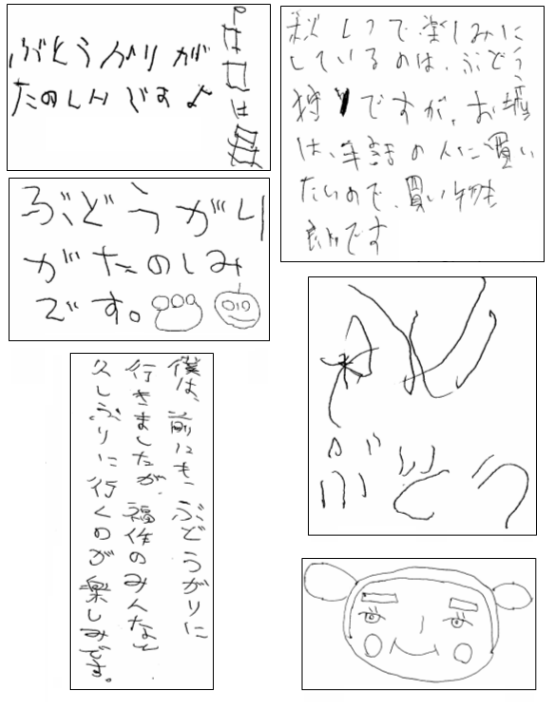 ぶどうがりが
たのしみですよ
秋レクで楽しみに
しているのは、ぶどう
狩りですが、お墳
は、年話の人に買い
たいので、買い物も
ぶどうがり
がたのしみ
です。
僕は、前にも、ぶどうがりに
行きましたが、福作のみんなで
久しぶりに行くのが楽しみです。
ぶどう